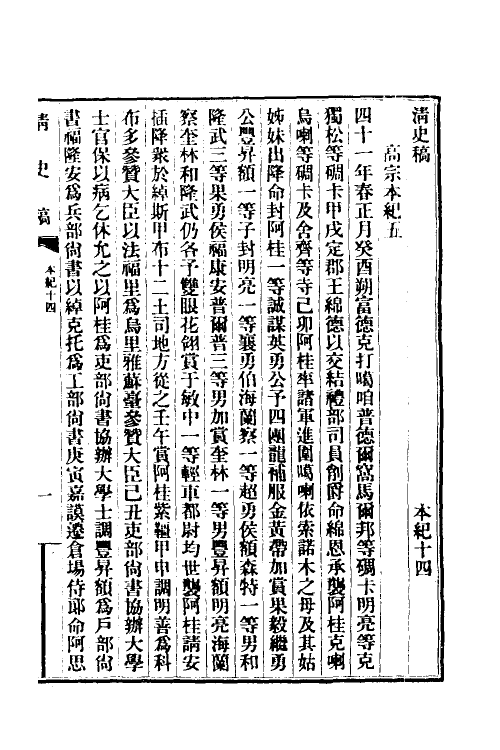 清史稿　本紀十四
高宗本紀五
四十一年春正月癸酉朔富德克打噶咱普德爾窩馬爾邦等碉卡明亮等克
獨松等碉卡甲戌定郡王綿德以交結禮部司員削爵命綿恩承襲阿桂克喇
烏喇等碉卡及舍齊等寺己卯阿桂率諸軍進圍噶喇依索諾木之母及其姑
姊妹出降命封阿桂一等誠謀英勇公予四團龍補服金黃帶加賞果毅繼勇
公豐昇額一等子封明亮一等襄勇伯海蘭察一等超勇侯額森特一等男和
隆武三等果勇侯福康安普爾普三等男加賞奎林一等男豐昇額明亮海蘭
察奎林和隆武仍各予雙眼花翎賞于敏中一等輕車都尉均世襲阿桂請安
插降衆於綽斯甲布十二土司地方從之壬午賞阿桂紫韁甲申調明善爲科
布多參贊大臣以法福里爲烏里雅蘇臺參贊大臣己丑吏部尙書協辦大學
士官保以病乞休允之以阿桂爲吏部尙書協辦大學士調豐昇額爲戶部尙
書福隆安爲兵部尙書以綽克托爲工部尙書庚寅嘉謨遷倉場侍郎命阿思
淸史稿
本紀十四
一